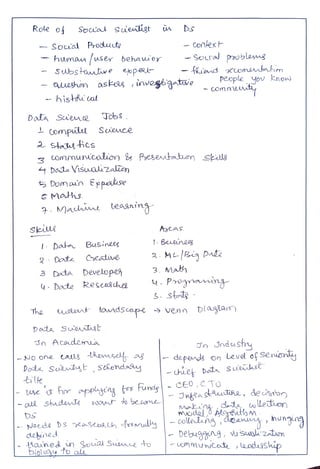 Role of Social Scientist in DS
- Social Products - context
- human/user behavior - Social problems
- Substantive expert - friend recommendation
People you know
- Question asker, investigative - community
- historical
Data Science Jobs.
1 Computer Science
2. Statistics
3 Communication & Presentation Skills
4 Data Visualization
5 Domain Expertise
6 Maths
7. Machine Learning
Skills Areas
1. Data Business 1. Business
2. Data Creative 2. ML/Big Data
3 Data Developer 3. Math
4. Data Researcher 4. Programming
5. Stats
The Landscape → Venn Diagram
Data Scientist
In Academia In Industry
- No one calls themself as
Data Scientist, secondary
title
- use it for applying for Funds
- all students want to become
DS
- Needs DS research, formally
defined
- trained in Social Science to
biology to all
- depends on Level of Seniority
- chief Data Scientist
- CEO, CTO
- Infrastructure, decision
making, data collection
model, Algorithm
- collecting, cleaning, munging
- Debugging, visualization
- communicate, leadership